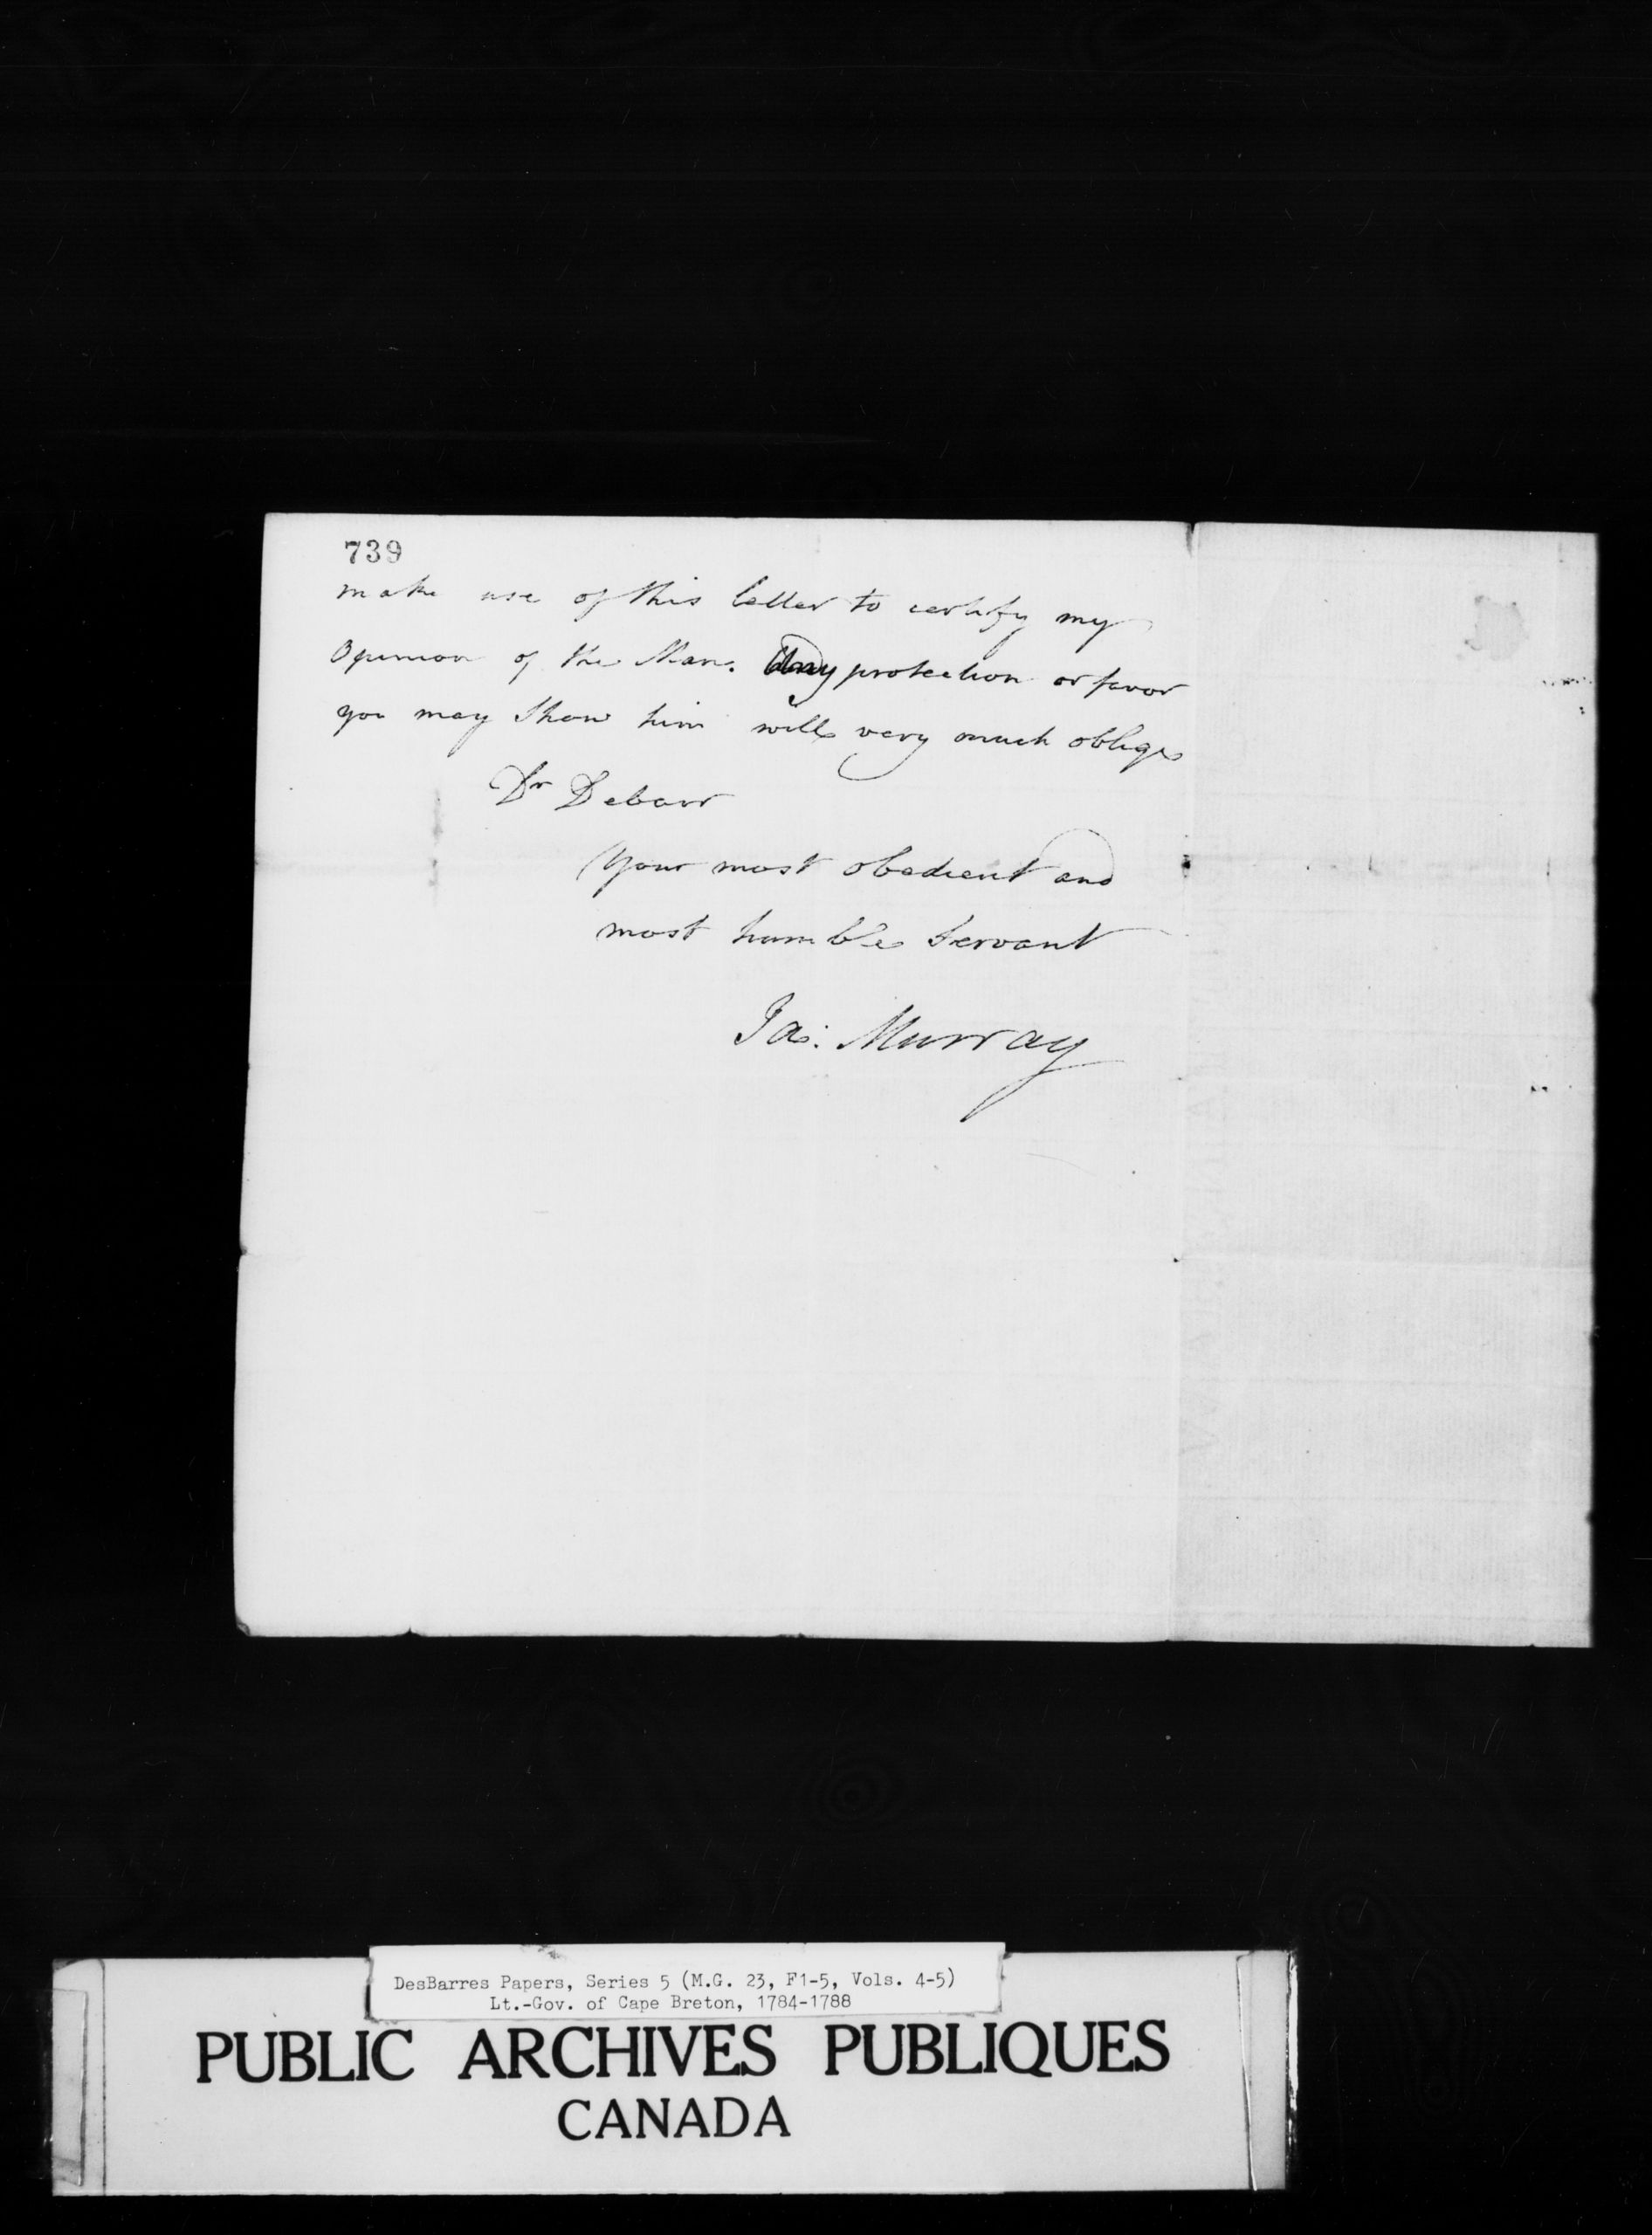 739
make use of this letter to certify my
Opinion of the Man. Any protection or favor
you may Shew him will very much oblige
Dr Debarr
Your most obedient and
most humble Servant
Jas: Murray
DesBarres Papers, Series 5 (M.G. 23, F1-5, Vols. 4-5)
Lt.-Gov. of Cape Breton, 1784-1788
PUBLIC ARCHIVES PUBLIQUES
CANADA